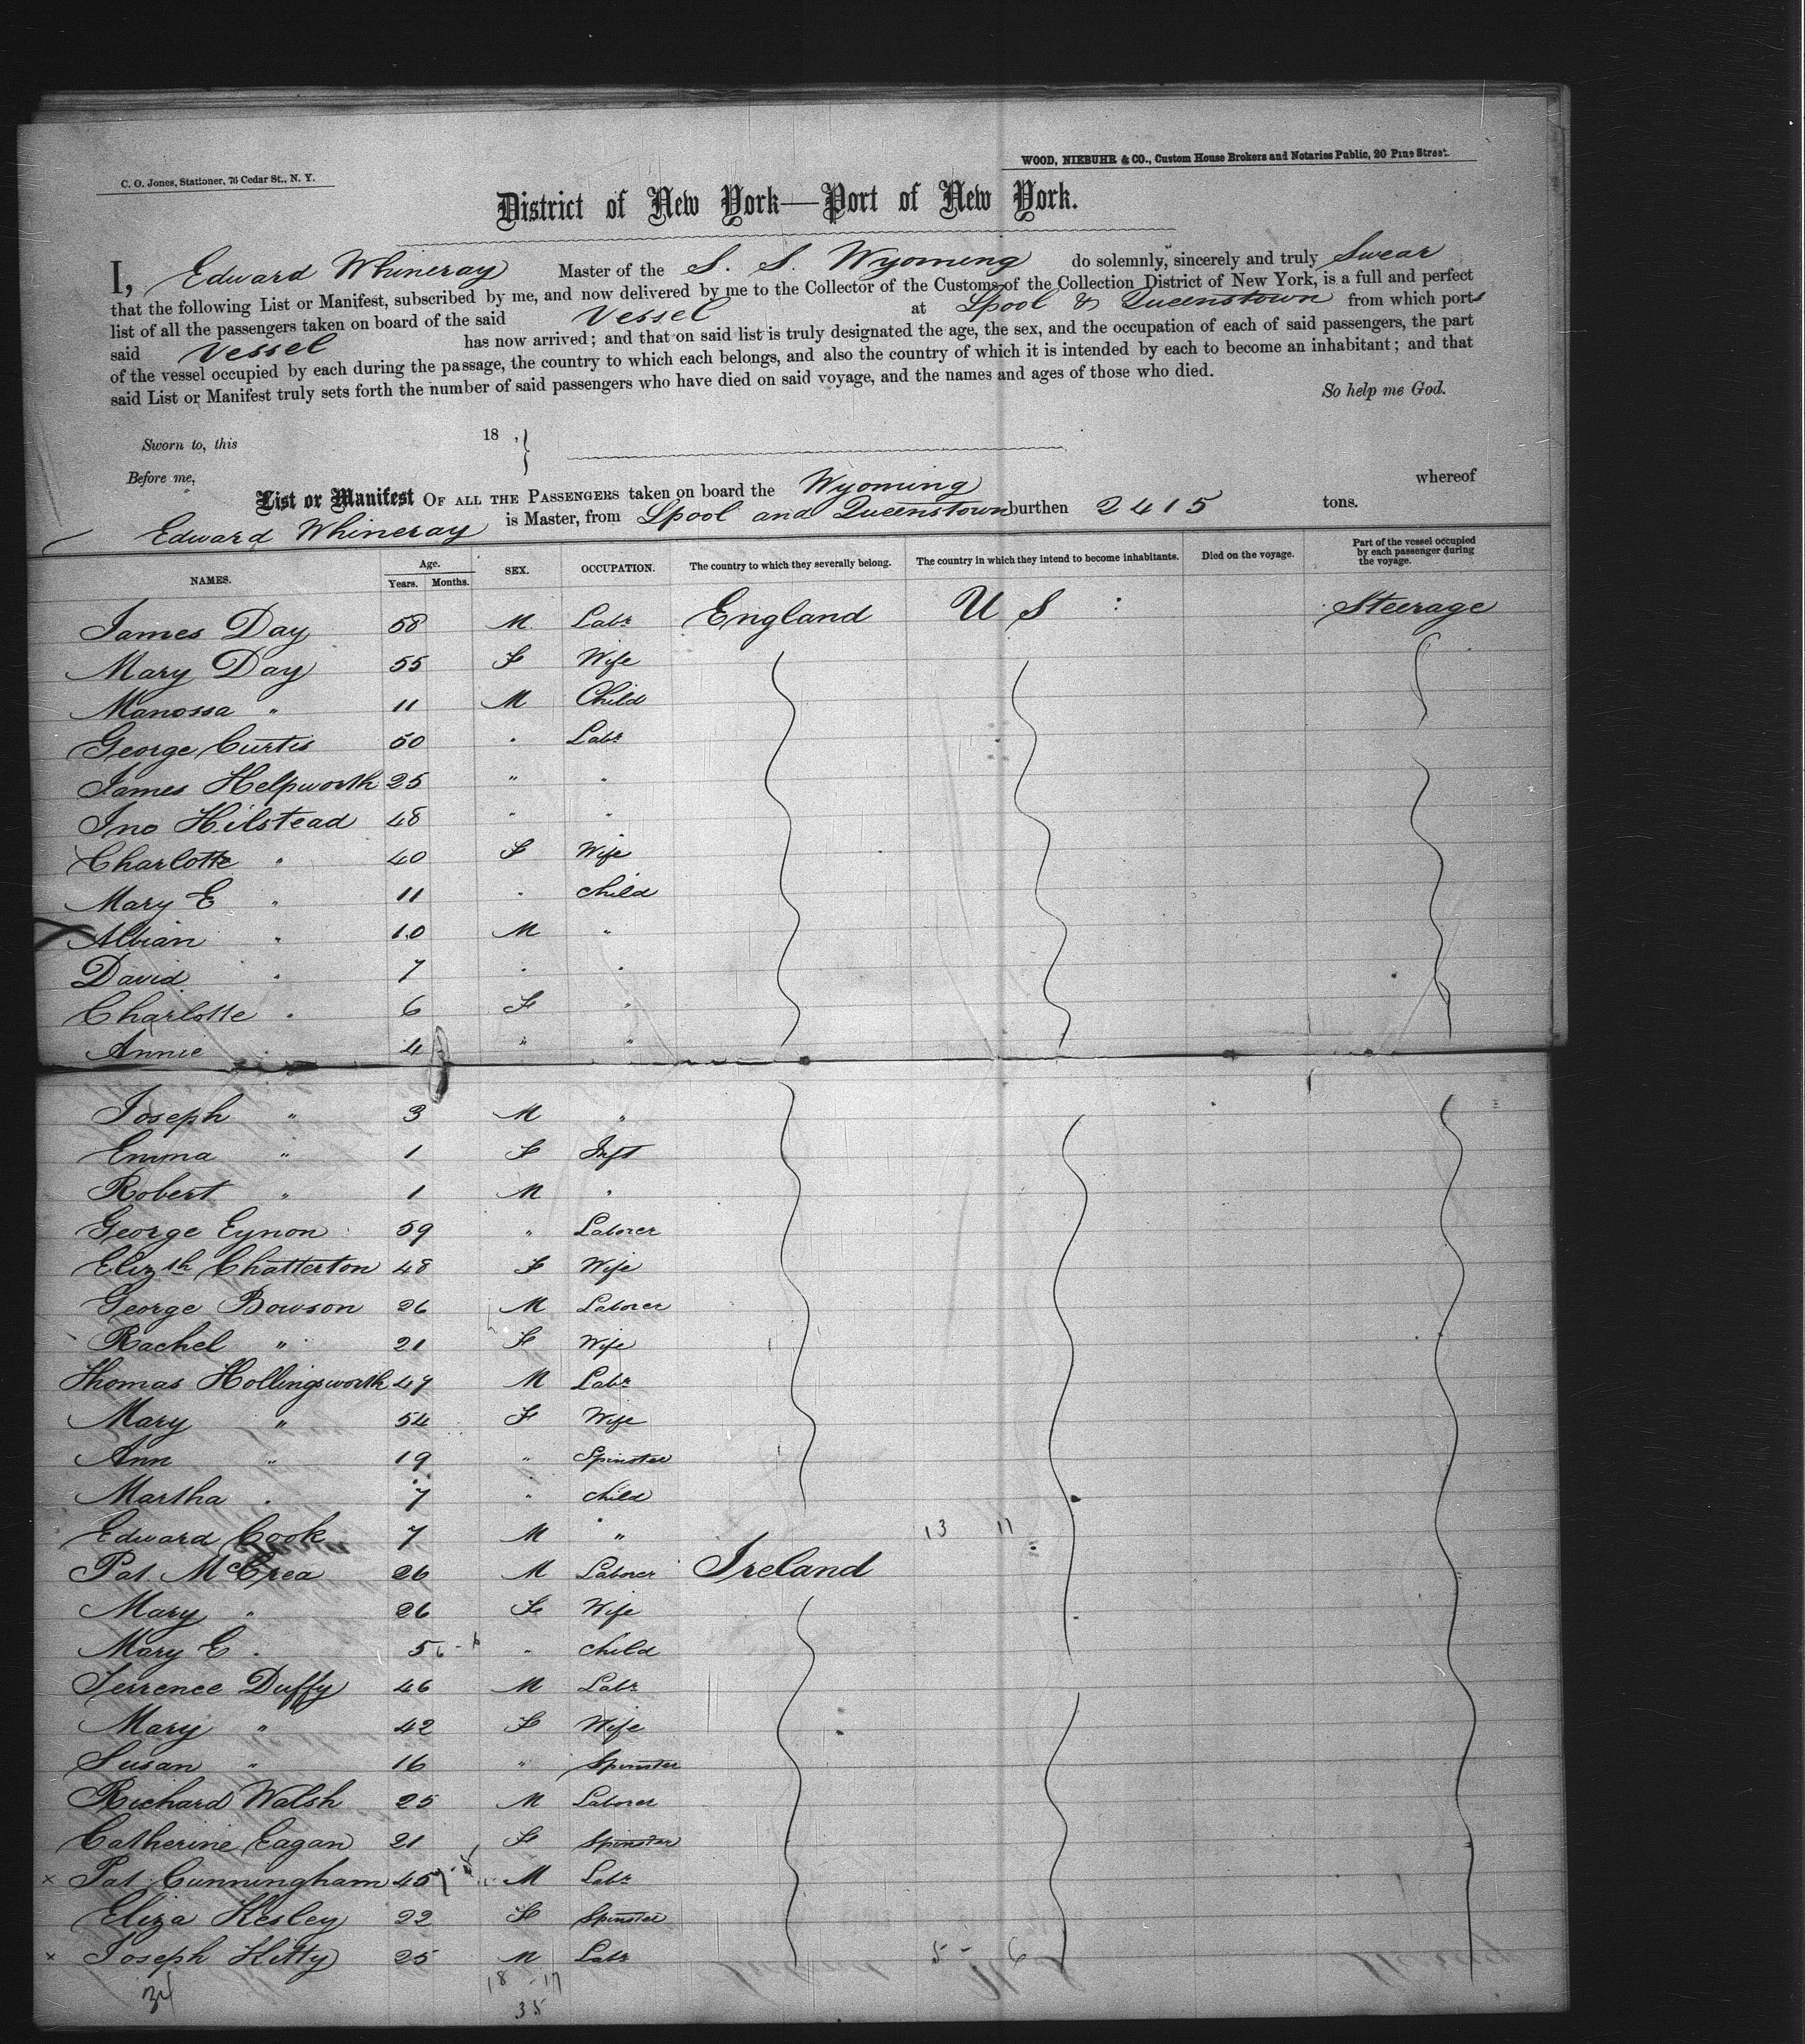 C. O. Jones, Stationer, 76 Cedar St., N. Y.
WOOD, NIEBUHR & CO., Custom House Brokers and Notaries Public, 20 Pine Street.
District of New York—Port of New York.
I, Edward Whineray Master of the S. S. Wyoming do solemnly, sincerely and truly Swear
that the following List or Manifest, subscribed by me, and now delivered by me to the Collector of the Customs of the Collection District of New York, is a full and perfect
list of all the passengers taken on board of the said Vessel at Lpool & Queenstown from which ports
said Vessel has now arrived; and that on said list is truly designated the age, the sex, and the occupation of each of said passengers, the part
of the vessel occupied by each during the passage, the country to which each belongs, and also the country of which it is intended by each to become an inhabitant; and that
said List or Manifest truly sets forth the number of said passengers who have died on said voyage, and the names and ages of those who died.
So help me God.
Sworn to, this 18 ,
Before me,
List or Manifest OF ALL THE PASSENGERS taken on board the Wyoming whereof
Edward Whineray is Master, from Lpool and Queenstown burthen 2415 tons.
NAMES. Age. Years. Months. SEX. OCCUPATION. The country to which they severally belong. The country in which they intend to become inhabitants. Died on the voyage. Part of the vessel occupied by each passenger during the voyage.
James Day 58 M Labr England U S Steerage
Mary Day 55 F Wife
Manossa " 11 M Child
George Curtis 50 " Labr
James Helpworth 25 " "
Jno Hilstead 48 " "
Charlotte " 40 F Wife
Mary E " 11 " child
Albian " 10 M "
David " 7 " "
Charlotte " 6 F "
Annie " 4 " "
Joseph " 3 M "
Emma " 1 F Inft
Robert " 1 M "
George Eynon 59 " Laborer
Elizth Chatterton 48 F Wife
George Bowson 26 M Laborer
Rachel " 21 F Wife
Thomas Hollingsworth 49 M Labr
Mary " 54 F Wife
Ann " 19 " Spinster
Martha " 7 " child
Edward Cook 7 M " 13 11
Pat McCrea 26 M Laborer Ireland
Mary " 26 F Wife
Mary E " 5 " child
Terrence Duffy 46 M Labr
Mary " 42 F Wife
Susan " 16 " Spinster
Richard Walsh 25 M Laborer
Catherine Eagan 21 F Spinster
x Pat Cunningham 45 M Labr
Eliza Kesley 22 F Spinster
x Joseph Kitty 25 M Labr 5 - 6
34 18 - 17
35